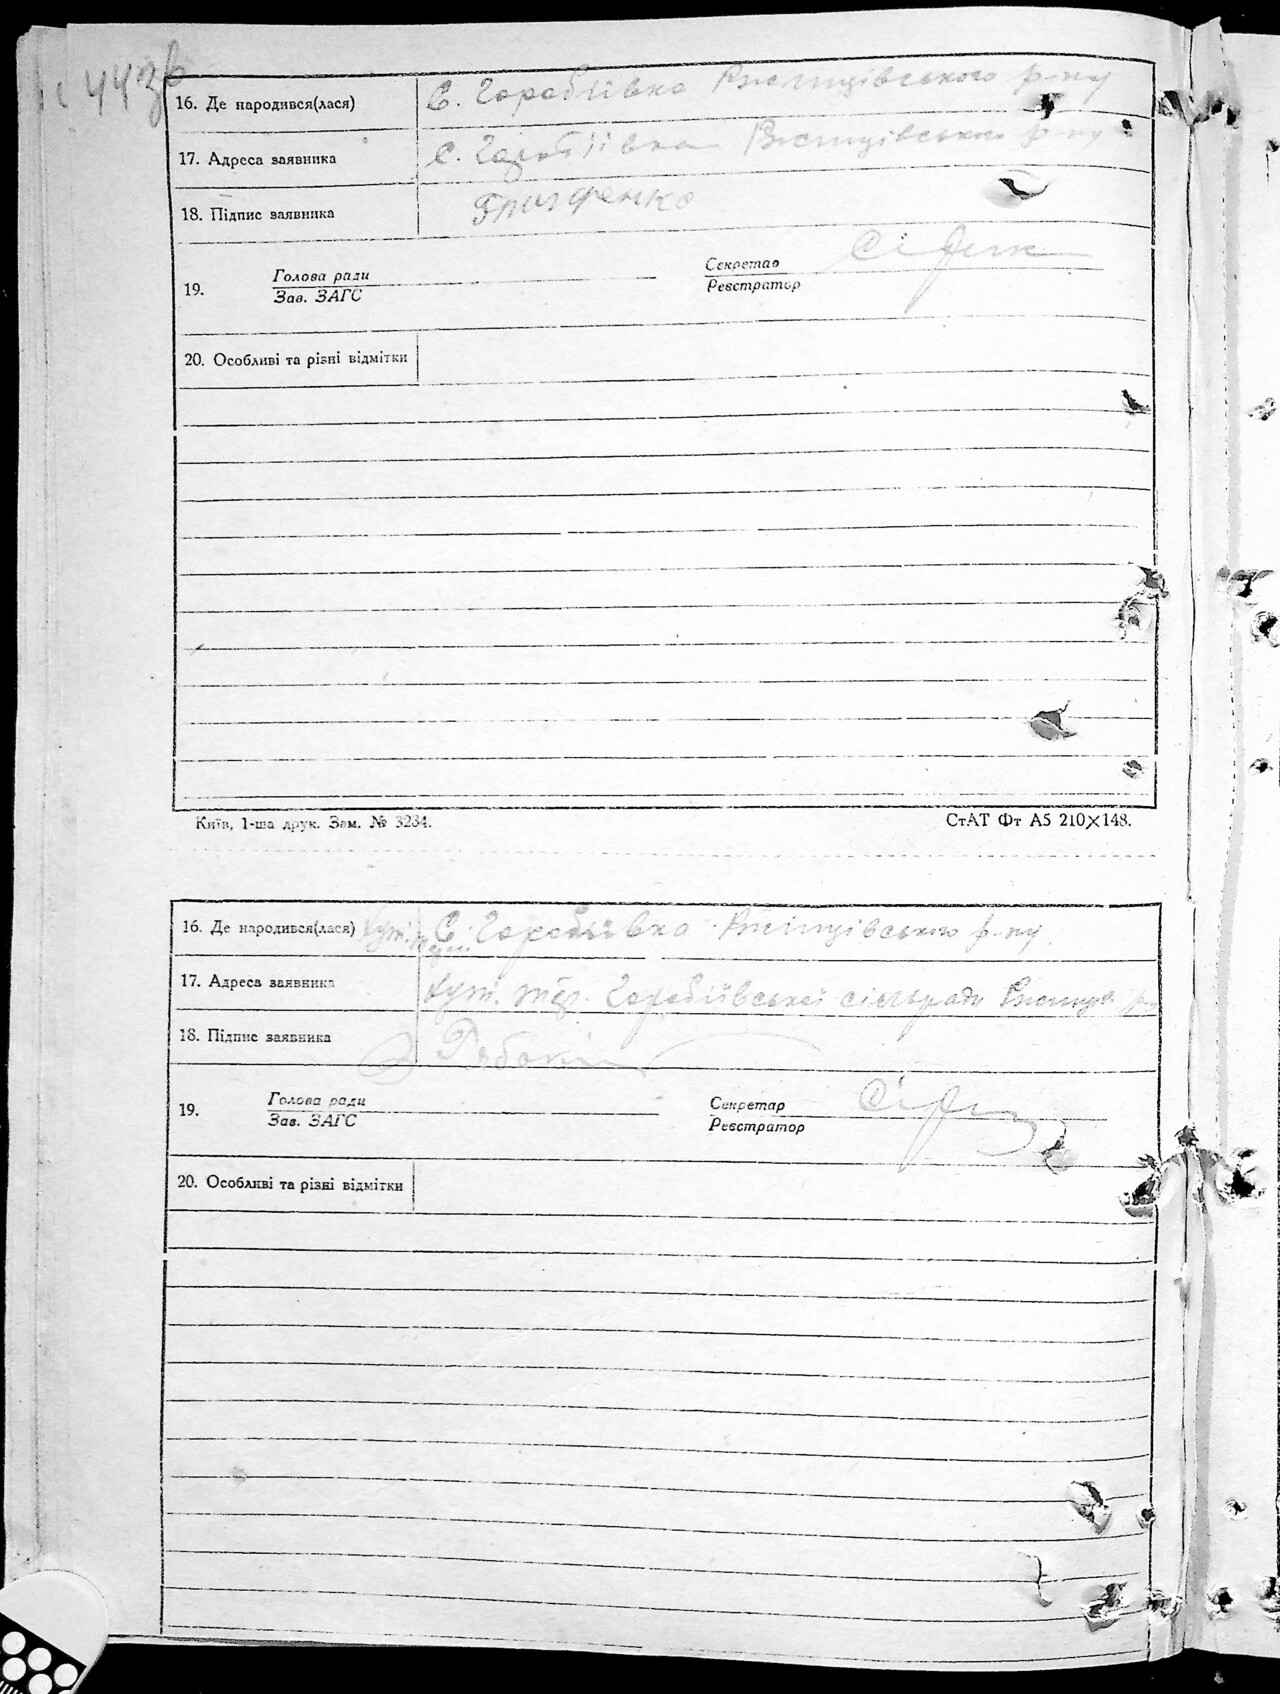 44зв
16. Де народився(лася) С. Горобіївка Ржищівського р-ну
17. Адреса заявника с. Горобіївка Ржищівського р-ну
18. Підпис заявника
19. Голова ради Секретар
Зав. ЗАГС Реєстратор
20. Особливі та різні відмітки
Київ, 1-ша друк. Зам. № 3234. СтАТ Фт А5 210×148.
16. Де народився(лася) хут. С. Горобіївка Ржищівського р-ну
17. Адреса заявника хут. Горобіївської сільради
18. Підпис заявника
19. Голова ради Секретар
Зав. ЗАГС Реєстратор
20. Особливі та різні відмітки